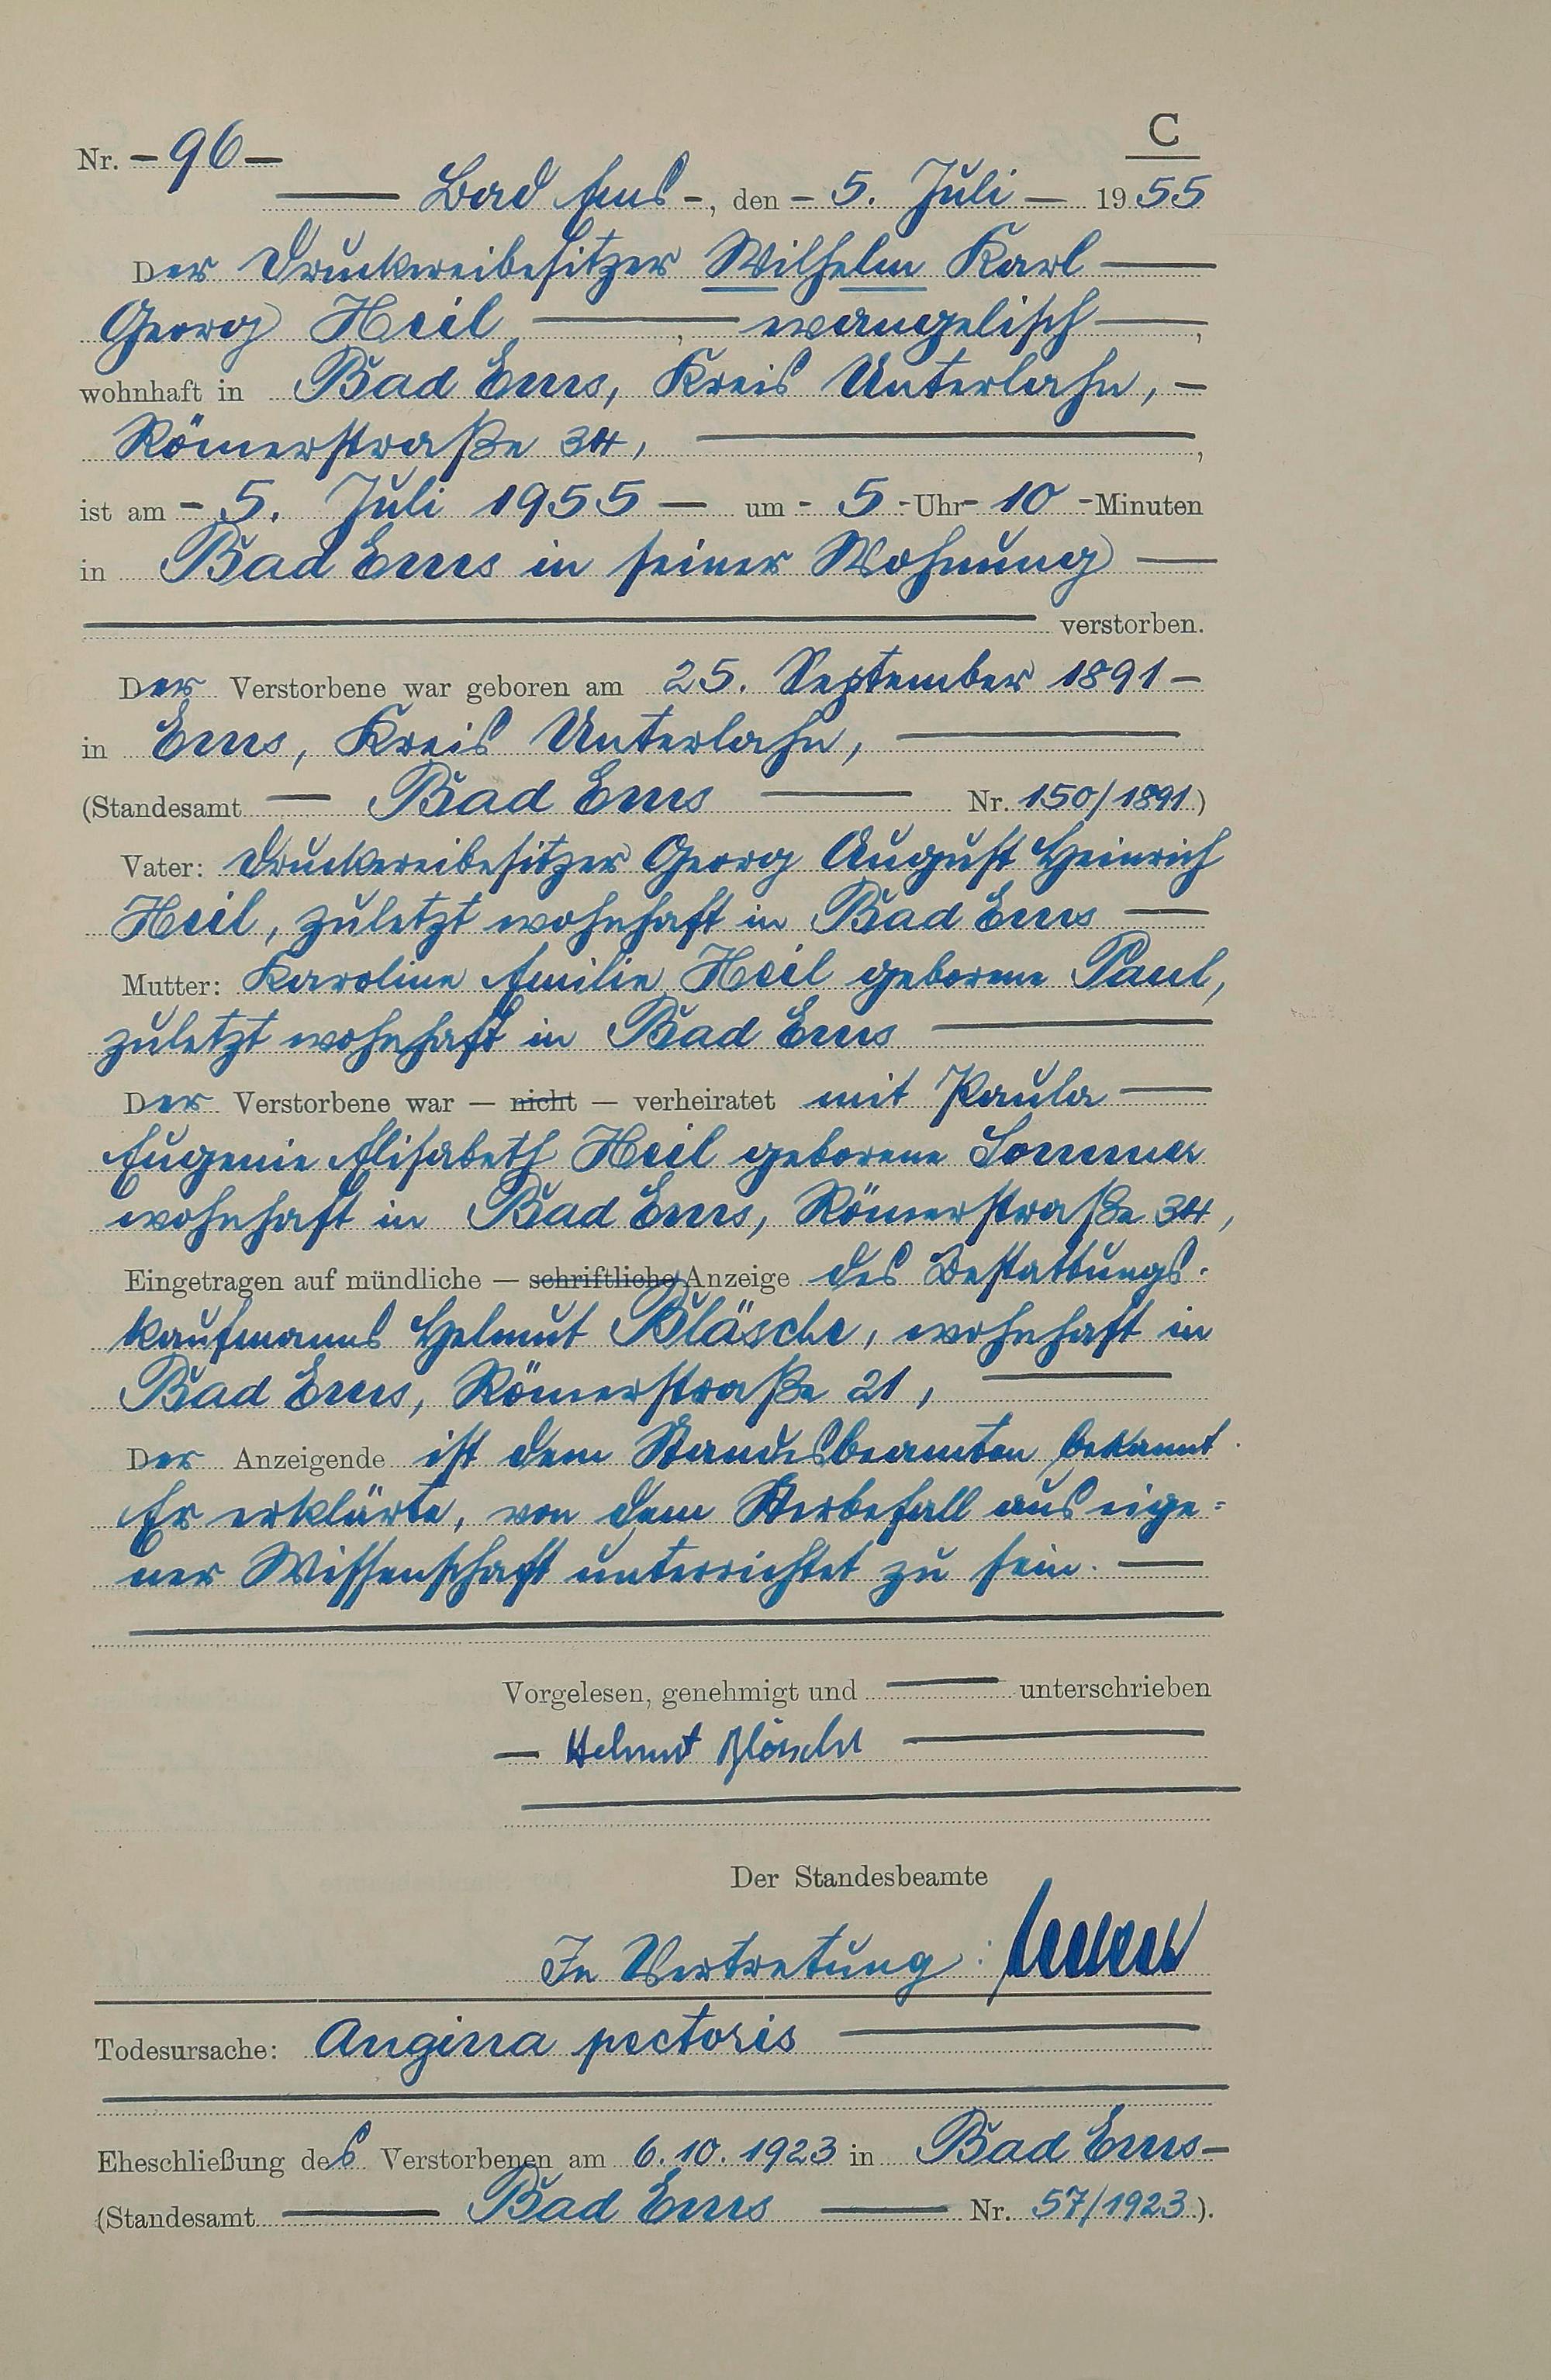 C
Nr. - 96 -
Bad Ems -, den - 5. Juli - 1955
Der Druckereibesitzer Wilhelm Karl
Georg Heil, evangelisch,
wohnhaft in Bad Ems, Kreis Unterlahn, -
Römerstraße 34,
ist am - 5. Juli 1955 - um - 5 - Uhr - 10 - Minuten
in Bad Ems in seiner Wohnung
verstorben.
Der Verstorbene war geboren am 25. September 1891 -
in Ems, Kreis Unterlahn,
(Standesamt Bad Ems Nr. 150/1891)
Vater: Druckereibesitzer Georg August Heinrich
Heil, zuletzt wohnhaft in Bad Ems
Mutter: Karoline Emilie Heil geborene Paul,
zuletzt wohnhaft in Bad Ems
Der Verstorbene war — nicht — verheiratet mit Paula
Eugenie Elisabeth Heil geborene Sommer
wohnhaft in Bad Ems, Römerstraße 34,
Eingetragen auf mündliche — schriftliche Anzeige des Bestattungs-
kaufmanns Helmut Bläsche, wohnhaft in
Bad Ems, Römerstraße 21,
Der Anzeigende ist dem Standesbeamten bekannt.
Er erklärte, von dem Sterbefall aus eige=
ner Wissenschaft unterrichtet zu sein.
Vorgelesen, genehmigt und unterschrieben
Helmut Bläsche
Der Standesbeamte
In Vertretung:
Todesursache: Angina pectoris
Eheschließung des Verstorbenen am 6.10.1923 in Bad Ems -
(Standesamt Bad Ems Nr. 57/1923).